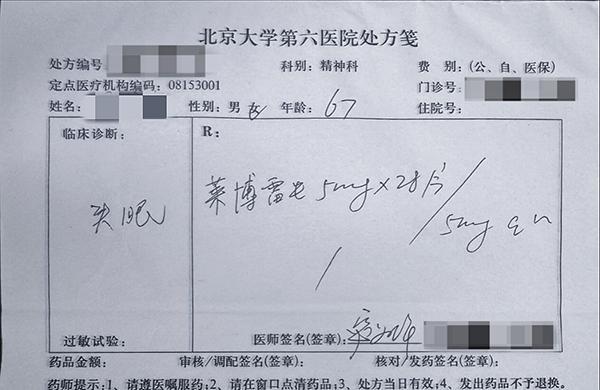 北京大学第六医院处方笺
处方编号 科别：精神科 费 别：(公、自、医保)
定点医疗机构编码：08153001 门诊号：
姓名： 性别：男 女 年龄：67 住院号：
临床诊断： R：
失眠 莱博雷生 5mg×28片
5mg qn
过敏试验： 医师签名(签章)：
药品金额： 审核/调配签名(签章)： 核对/发药签名(签章)：
药师提示：1、请遵医嘱服药；2、请在窗口点清药品；3、处方当日有效；4、发出药品不予退换。